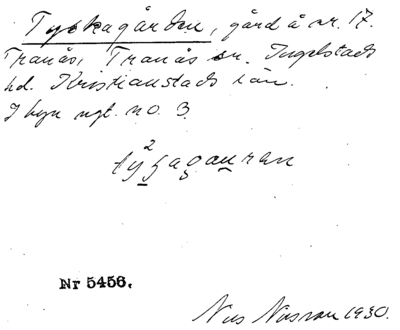 Tyskagården, gård å nr. 17.
Tranås, Tranås sn. Ingelstads
hd. Kristianstads län.
I byn ngt. n.o. 3
Nr 5456.
Nils 1930.